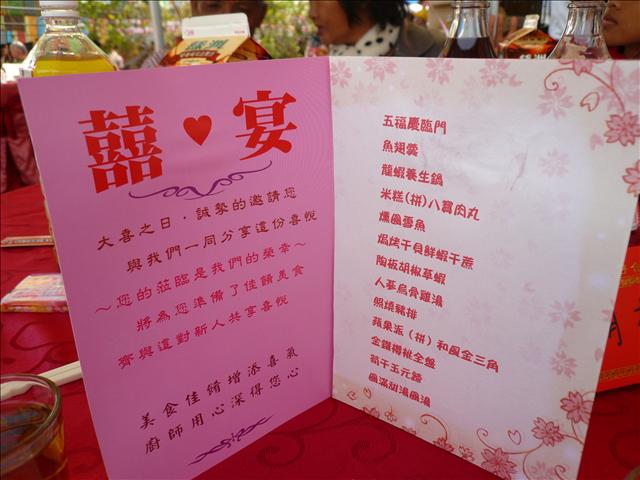 囍♥宴
大喜之日．誠摯的邀請您
與我們一同分享這份喜悅
～您的蒞臨是我們的榮幸～
將為您準備了佳餚美食
齊與這對新人共享喜悅
美食佳餚增添喜氣
廚師用心深得您心
五福慶臨門
魚翅羹
龍蝦養生鍋
米糕(拼)八寶肉丸
燻風雪魚
焗烤干貝鮮蝦干蔴
陶板胡椒草蝦
人蔘烏骨雞湯
照燒豬排
蘋果派（拼）和風金三角
金鑽櫻桃全盤
筍干玉元蹄
圓滿甜湯圓湯